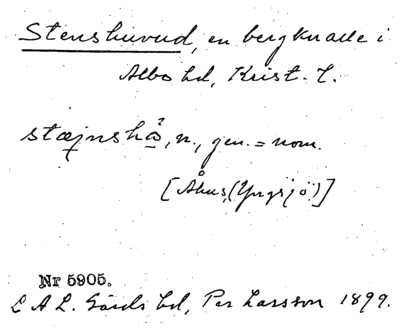 Stenshuvud, en bergknalle i
Albo hd, Krist. l.
stæjnshå̂, n., gen. = nom.
[Åhus, (Yngsjö)]
Nr 5905.
L A L. Gärds hd, Per Larsson 1899.